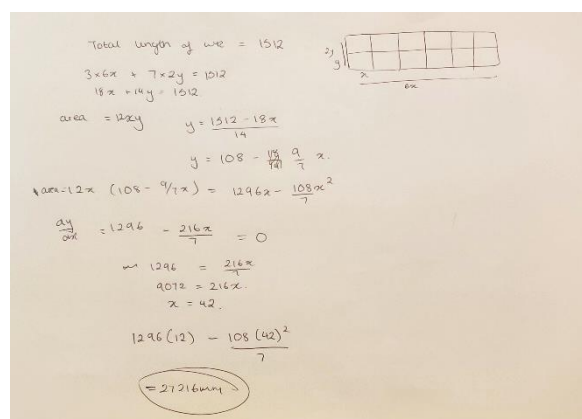 Total length of wire = 1512
2y
y
x
6x
3×6x + 7×2y = 1512
18x + 14y = 1512
area = 12xy
y = 1512 - 18x / 14
y = 108 - 9/7 x.
area = 12x (108 - 9/7x) = 1296x - 108x²/7
dy/dx = 1296 - 216x/7 = 0
1296 = 216x/7
9072 = 216x.
x = 42.
1296(12) - 108(42)²/7
= 27216mm